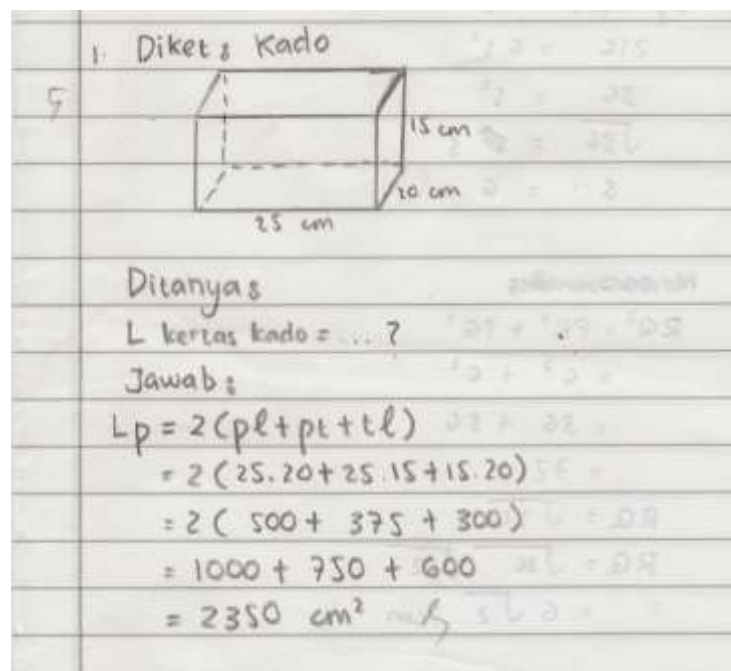 1. Diket : Kado
5
15 cm
20 cm
25 cm
Ditanya :
L kertas kado = ... ?
Jawab :
Lp = 2 (pl + pt + tl)
= 2 (25.20 + 25.15 + 15.20)
= 2 ( 500 + 375 + 300)
= 1000 + 750 + 600
= 2350 cm²